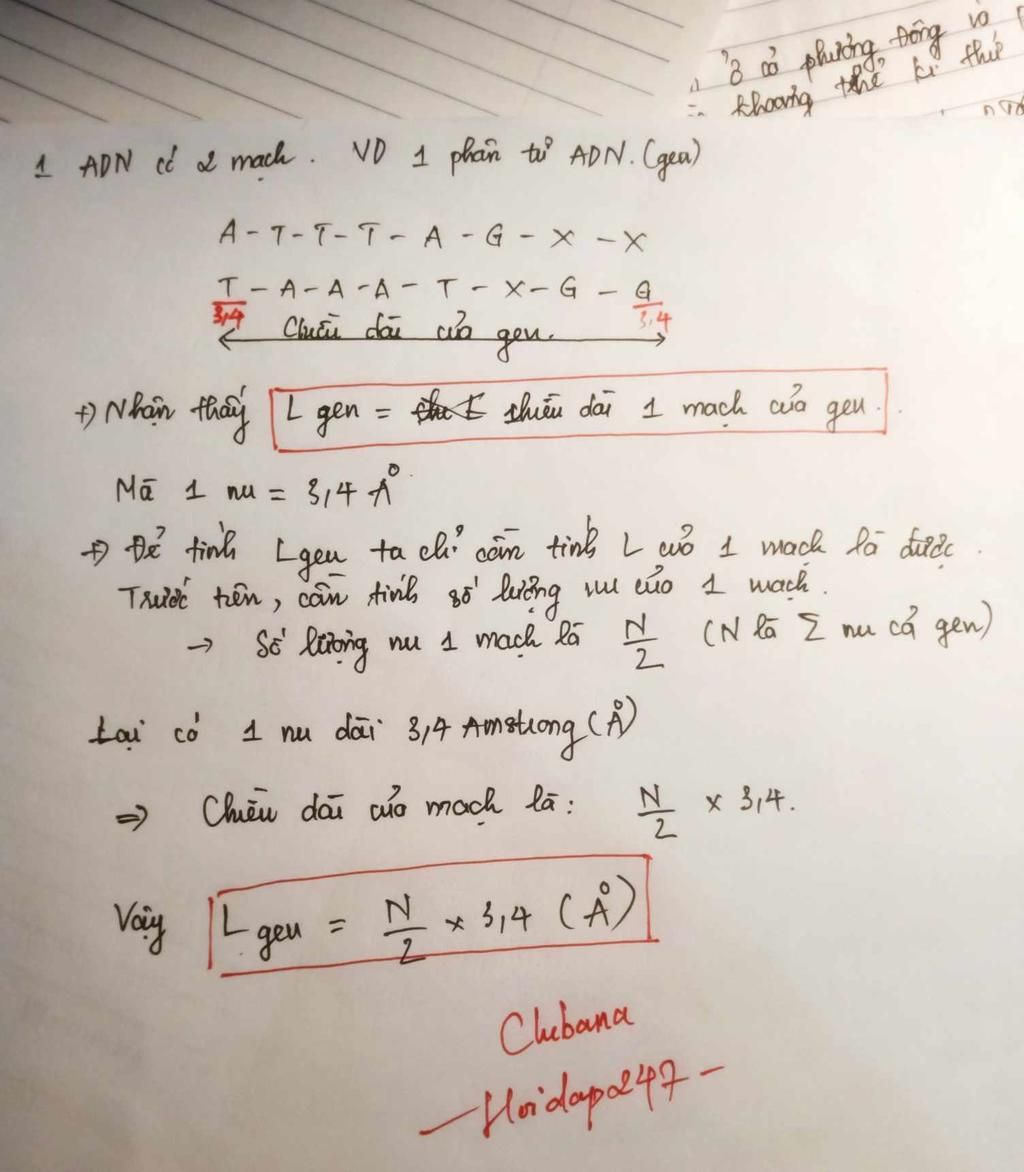 ở cả phương Đông và
khoảng thế kỉ thứ
1 ADN có 2 mạch. VD 1 phân tử ADN.(gen)
A - T - T - T - A - G - X - X
T - A - A - A - T - X - G - G
3,4 3,4
Chiều dài của gen.
+) Nhận thấy L gen = chiều dài 1 mạch của gen.
Mà 1 nu = 3,4 Å.
+) Để tính Lgen ta chỉ cần tính L của 1 mạch là được.
Trước tiên, cần tính số lượng nu của 1 mạch.
→ Số lượng nu 1 mạch là N/2 (N là Σ nu cả gen)
Lại có 1 nu dài 3,4 Amstrong (Å)
⇒ Chiều dài của mạch là: N/2 × 3,4.
Vậy L gen = N/2 × 3,4 (Å)
Chibana
- Hoidap247 -